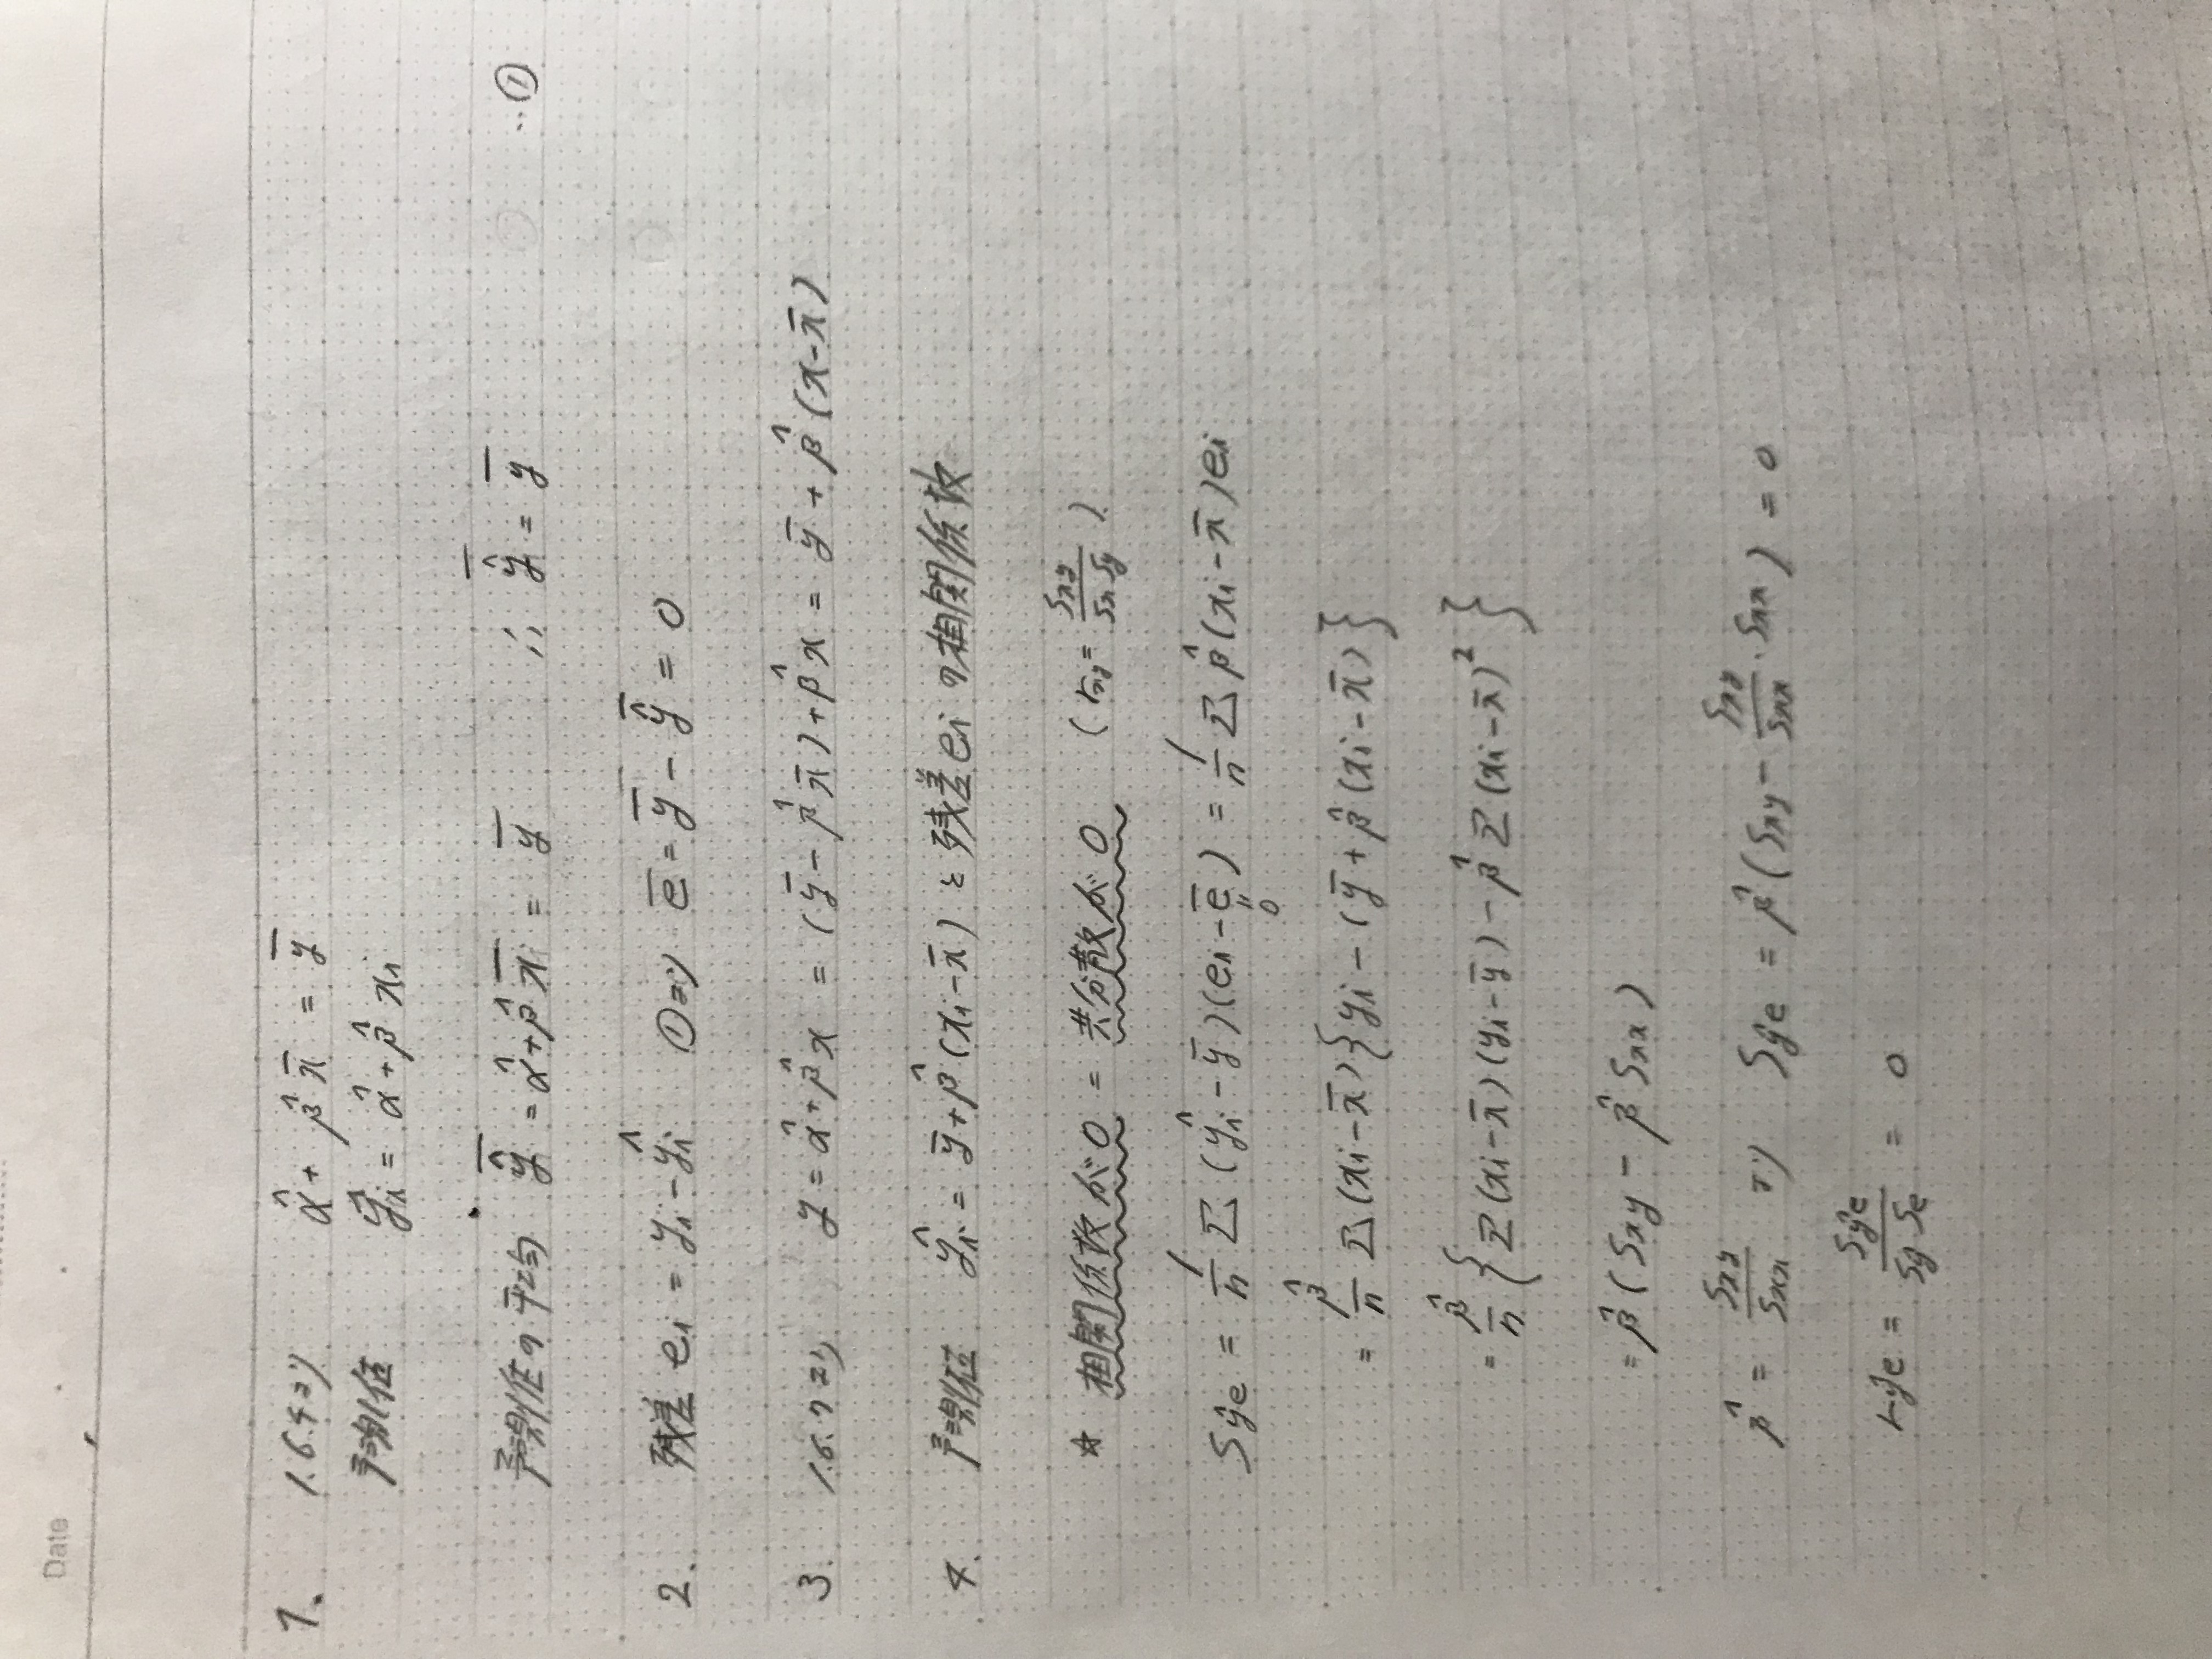 Date
1. 1.6.4より α̂ + β̂x̄ = ȳ
予測値 ŷi = α̂ + β̂xi
予測値の平均 ŷ̄ = α̂ + β̂x̄ = ȳ ∴ ŷ̄ = ȳ …①
2. 残差 ei = yi - ŷi ①より ē = ȳ - ŷ̄ = 0
3. 1.6.7より y = α̂ + β̂x = (ȳ - β̂x̄) + β̂x = ȳ + β̂(x - x̄)
4. 予測値 ŷi = ȳ + β̂(xi - x̄) と残差 ei の相関係数
☆ 相関係数が0 = 共分散が0 (rxy = Sxy / SxSy)
Sŷe = 1/n Σ(ŷi - ȳ)(ei - ē) = 1/n Σβ̂(xi - x̄)ei
" 0
= β̂/n Σ(xi - x̄){yi - (ȳ + β̂(xi - x̄)}
= β̂/n {Σ(xi - x̄)(yi - ȳ) - β̂Σ(xi - x̄)²}
= β̂(Sxy - β̂Sxx)
β̂ = Sxy/Sxx より Sŷe = β̂(Sxy - Sxy/Sxx・Sxx) = 0
rŷe = Sŷe / SŷSe = 0